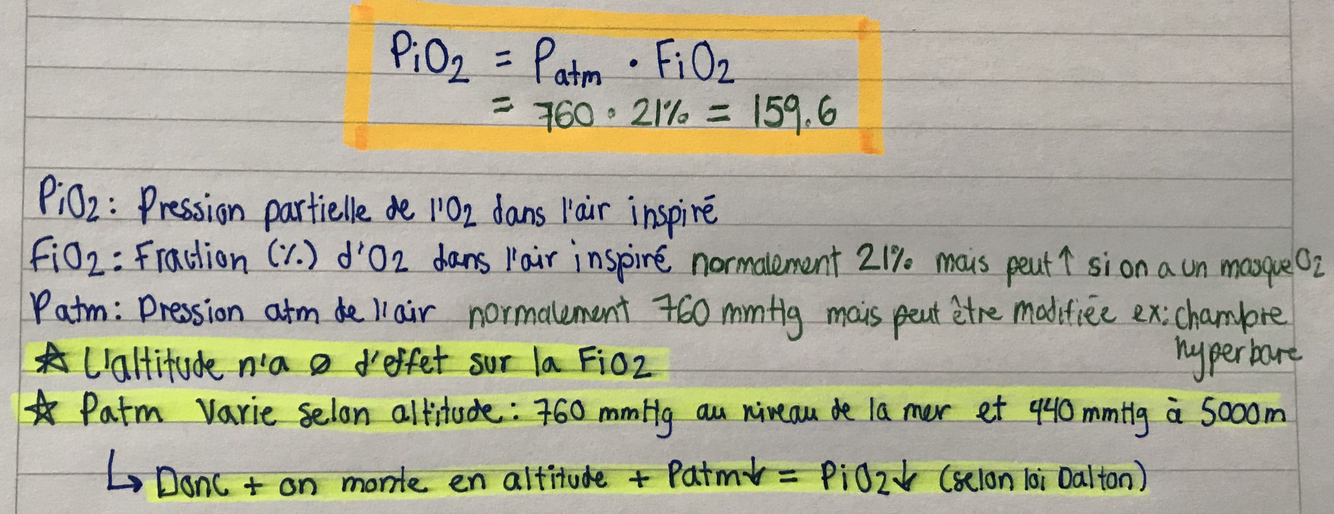 PiO2 = Patm · FiO2
= 760 · 21% = 159.6
PiO2: Pression partielle de l'O2 dans l'air inspiré
FiO2: Fraction (%) d'O2 dans l'air inspiré normalement 21% mais peut ↑ si on a un masque O2
Patm: Pression atm de l'air normalement 760 mmHg mais peut être modifiée ex: chambre
hyperbare
☆ L'altitude n'a ø d'effet sur la FiO2
☆ Patm varie selon altitude: 760 mmHg au niveau de la mer et 440 mmHg à 5000m
↳ Donc + on monte en altitude + Patm↓ = PiO2↓ (selon loi Dalton)